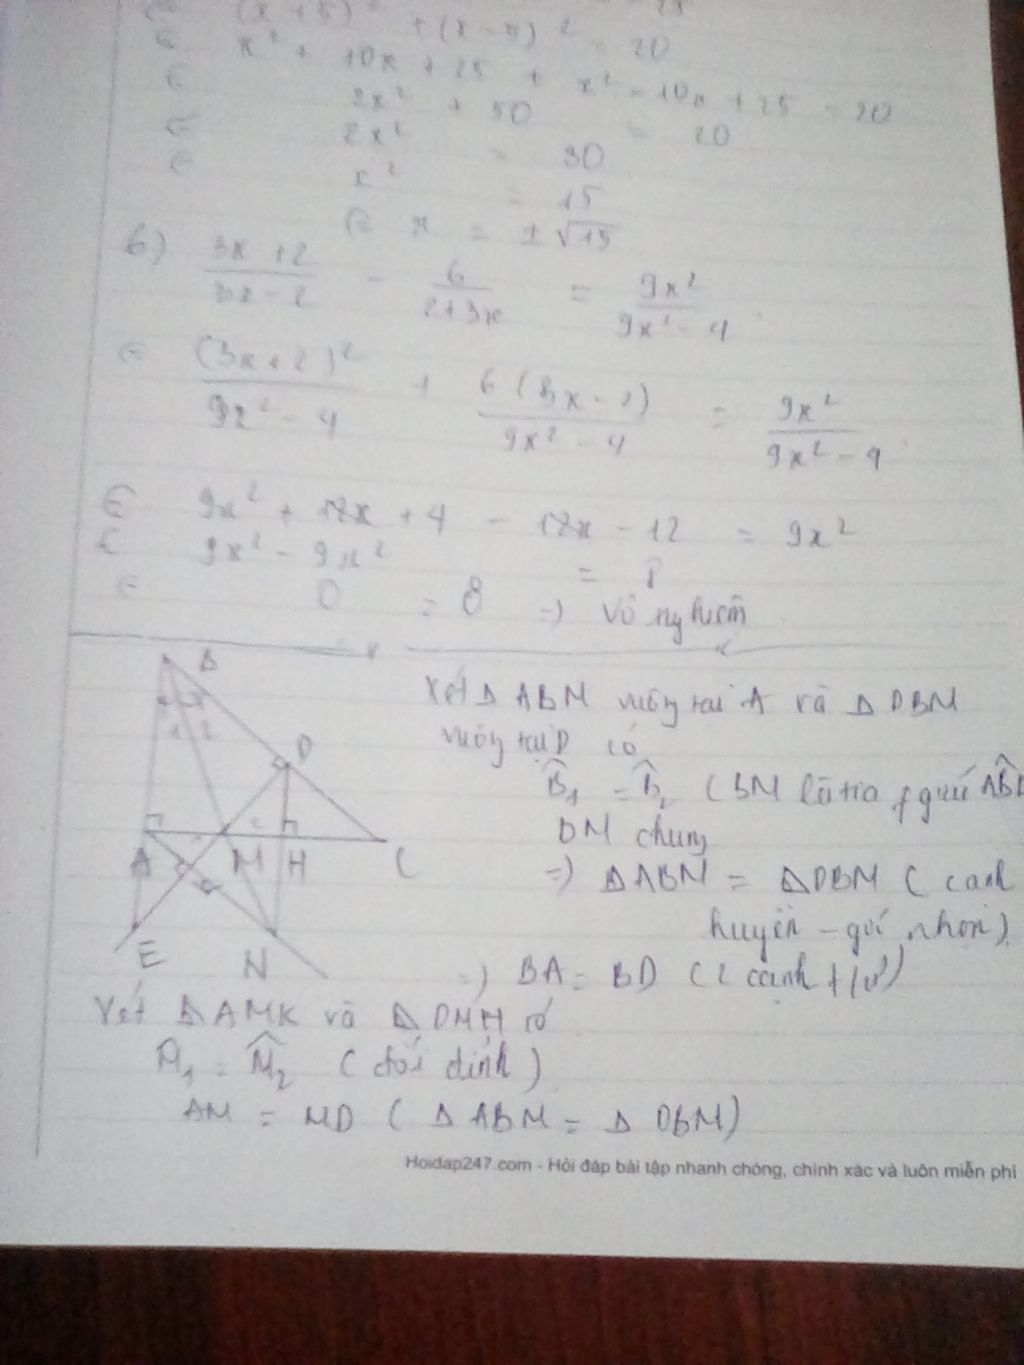 (x + 5)² + (x - 5)² = 20
x² + 10x + 25 + x² - 10x + 25 = 20
2x² + 50 = 20
2x² = 30
x² = 15
x = ± √15
b) (3x + 2)/(3x - 2) - 6/(2 + 3x) = 9x²/(9x² - 4)
(3x + 2)²/(9x² - 4) + 6(3x - 2)/(9x² - 4) = 9x²/(9x² - 9)
9x² + 12x + 4 - 18x - 12 = 9x²
9x² - 9x² = 8
0 = 8 => Vô nghiệm
B
1 2
D
A M H C
E N
Xét Δ ABM vuông tại A và Δ DBM
vuông tại D có
B̂₁ = B̂₂ (BM là tia f giác
BM chung
=> ΔABM = ΔDBM (cạnh
huyền - góc nhọn)
=> BA = BD (2 cạnh t/ứ)
Xét ΔAMK và ΔDMH có
M̂₁ = M̂₂ (đối đỉnh)
AM = MD (Δ ABM = Δ DBM)
Hoidap247.com - Hỏi đáp bài tập nhanh chóng, chính xác và luôn miễn phí